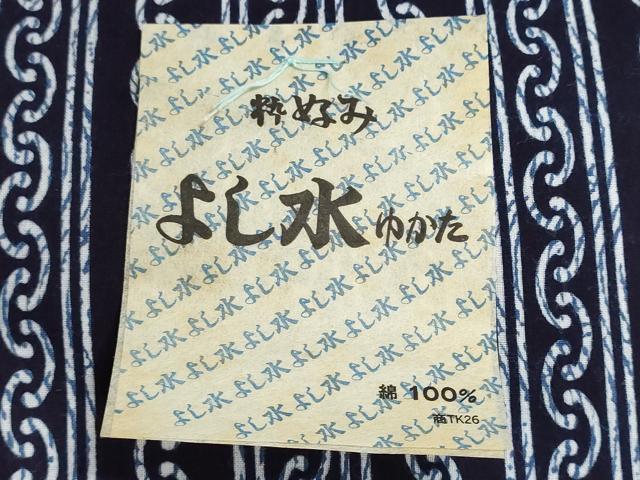 粋好み
よし水ゆかた
綿 100%
商TK26